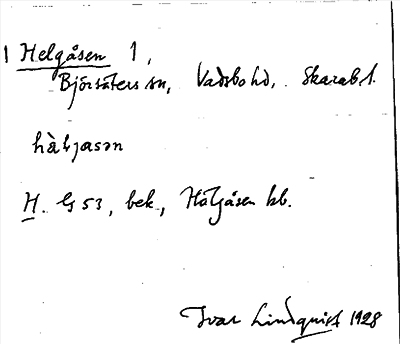 1 Helgåsen 1,
Björsäters sn, Vadsbo hd, Skarab. l.
hàl̡jasən
H. G 53, bek., Häljåsen kb.
Ivar Lindquist 1928